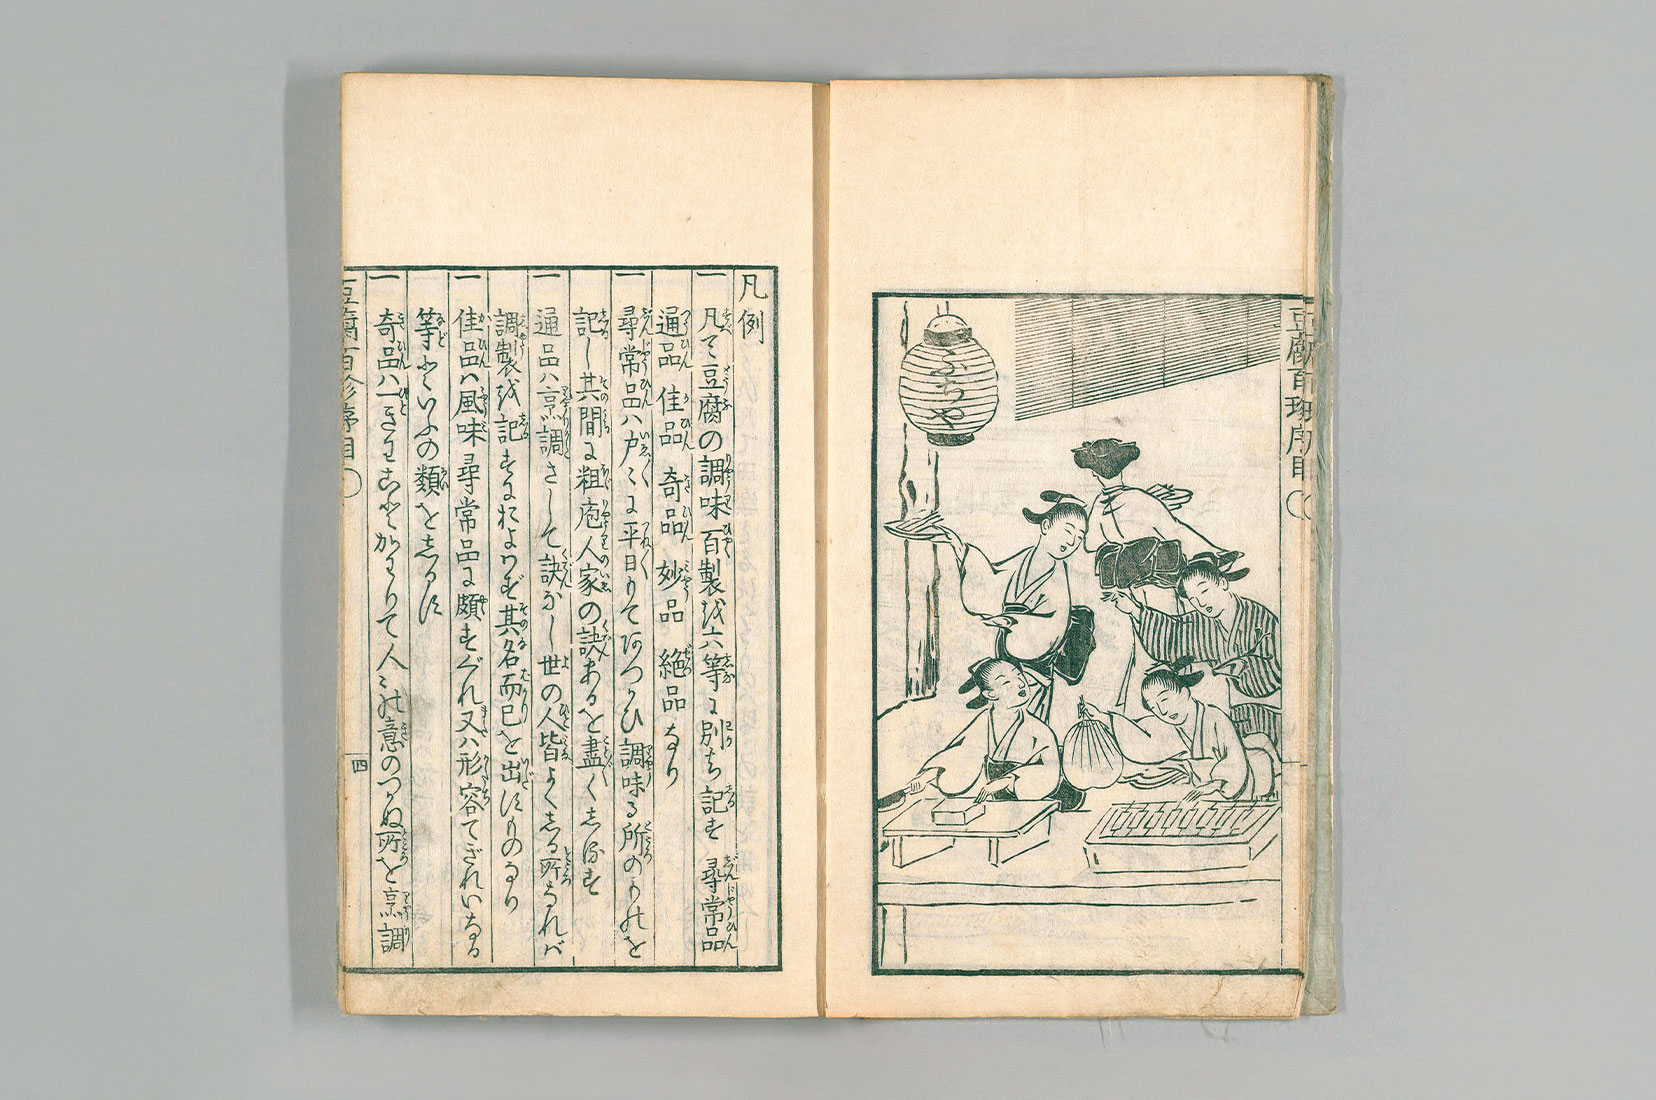 豆腐百珍序目
ふちや
凡例
一 凡て豆腐の調味百製を六等に別ち記す 尋常品
通品 佳品 奇品 妙品 絶品 なり
一 尋常品ハ戸々に平日りて 調味る所のものを
記し其間に粗庖人家の訣あるを盡くしるす
一 通品ハ烹調さして訣なし世の人皆よくしる所なれバ
調製を記すにおよバず其名而已を出すものなり
一 佳品ハ風味尋常品に頗すぐれ又ハ形容てぎれいなる
等といふの類をしるす
一 奇品ハ一きわことかわりて人々の意のつかぬ所を烹調
豆腐百珍序目
四